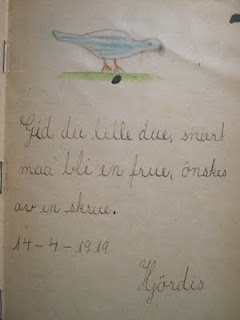 Gid du lille due, snart
maa bli en frue, önskes
av en skrue.
14-4-1919
Hjördis